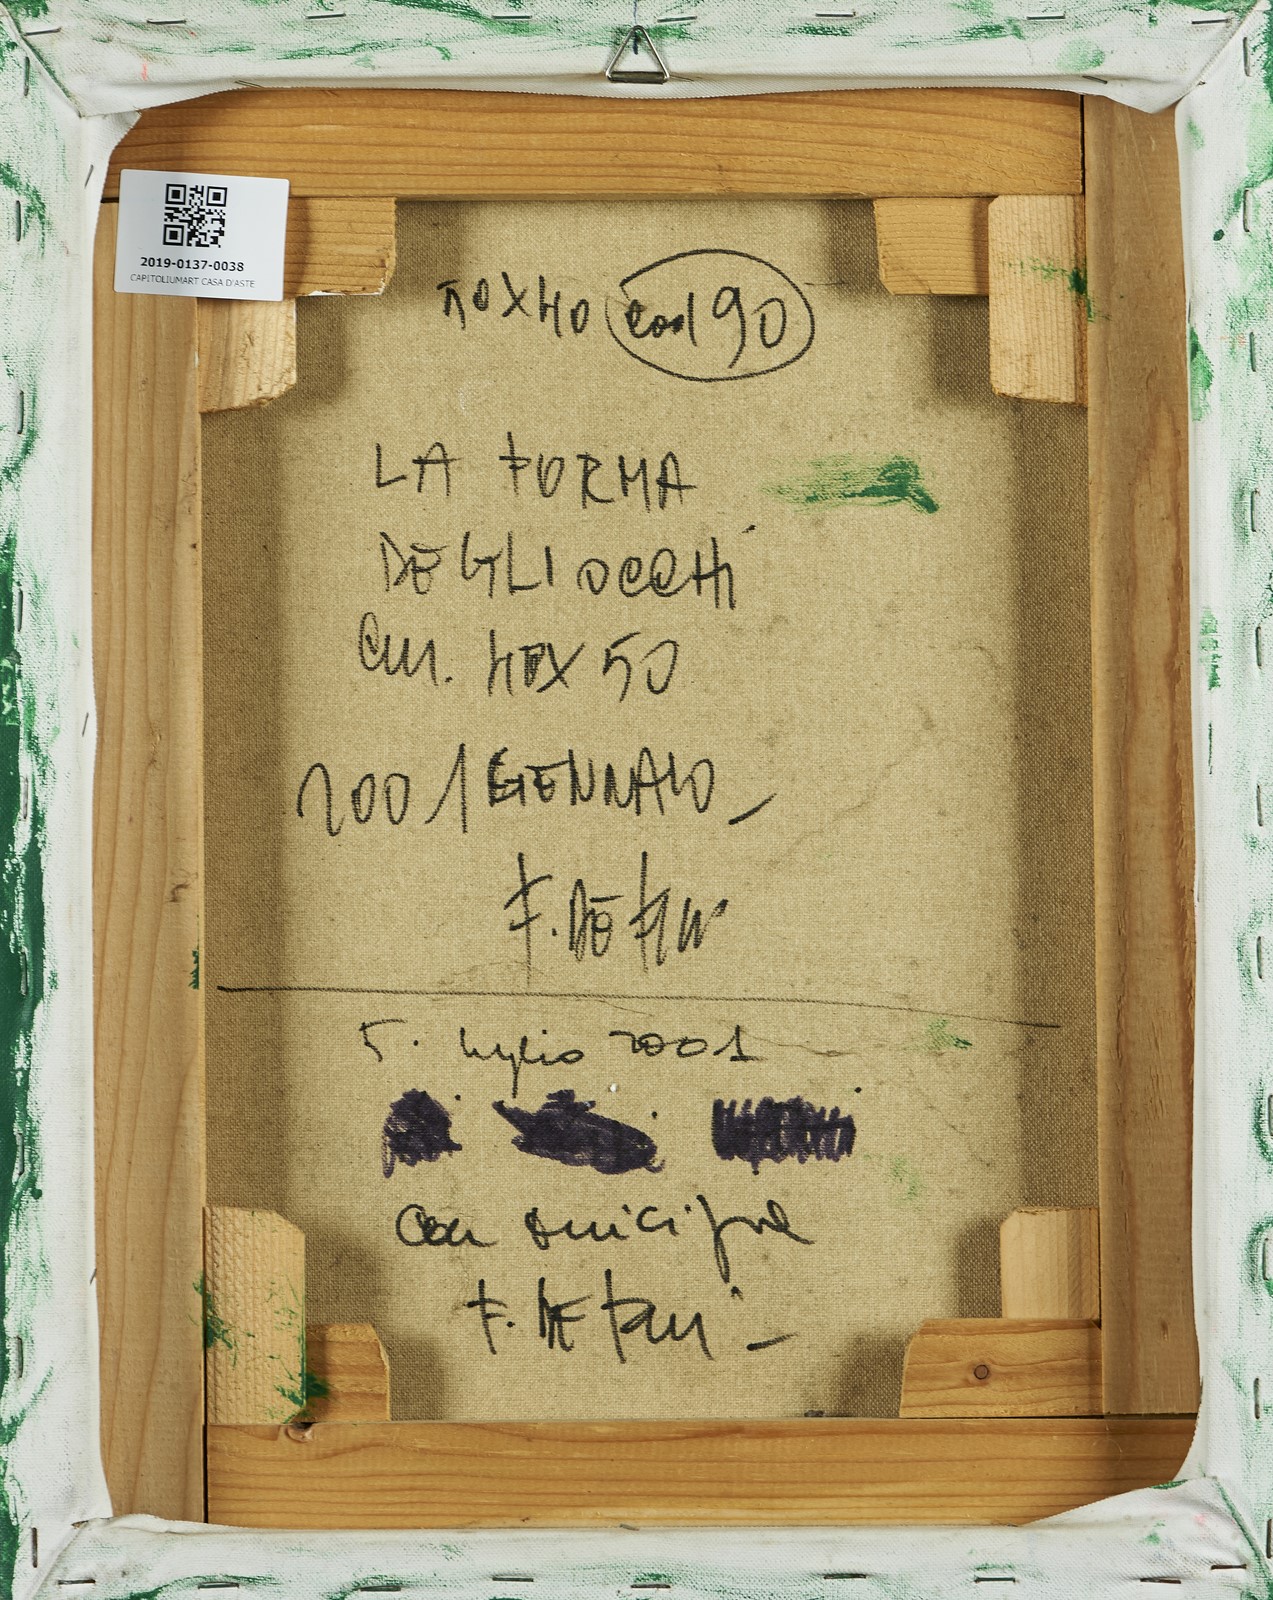 2019-0137-0038
CAPITOLIUMART CASA D'ASTE
50X40 cod 90
LA FORMA
DEGLI OCCHI
cm. 40X50
2001 GENNAIO_
F. DE
5. luglio 2001
con amicizia
F. DE